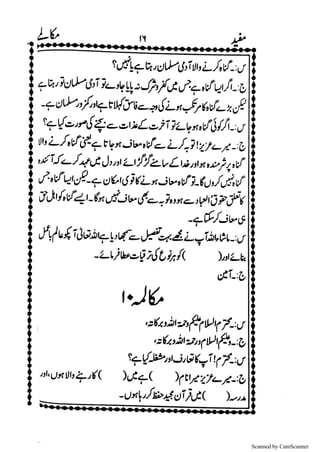 مفید ۱۶ مکالمے
س:۔ گناہ کرنے والا آدمی مسلمان رہتا ہے یا نہیں؟
ج:۔ اگر ایسا گناہ ہے جس میں کفر و شرک نہ پایا جاوے تو آدمی مسلمان تو رہتا ہے
لیکن بڑے گناہ کا مرتکب ہونے کی وجہ سے فاسق کہلاتا ہے اور کمزور مسلمان ہے۔
س:۔ اگر کوئی گناہ ہو جائے تو آخرت کے عذاب سے بچنے کی صورت کیا ہے؟
ج:۔ میرے عزیز! توبہ کرنے سے گناہ معاف ہو جاتا ہے یعنی گناہ کرنے والا
گناہ پر شرمندہ ہو اور خدا کے سامنے گڑگڑائے اور دل میں عہد کرے کہ آئندہ
گناہ نہیں کروں گا۔ تو گناہ معاف ہونے کا قوی امکان ہے۔ لیکن ایسا گناہ جس
کا تعلق حقوق العباد سے ہو وہ توبہ سے بھی معاف نہیں ہوگا۔ ایسے گناہ کو اہل حق
ہی معاف کر سکتا ہے۔
س:۔ ماشاء اللہ آپ نے مجھے بہت تفصیل سے سمجھا دیا ہے اللہ تعالیٰ آپ کو عالم باعمل
بنائے اور ( ) کو ہر نوع کی ترقیات عطا فرمائے۔
ج:۔ آمین
مکالمہ ۱۰
س:۔ محترم السلام علیکم ورحمۃ اللہ وبرکاتہ،
ج:۔ وعلیکم السلام ورحمۃ اللہ وبرکاتہ،
س:۔ محترم! آپ کا تعارف اور مشغلہ کیا ہے؟
ج:۔ میرے عزیز میرا نام ( ) ہے میں ( ) کا رہنے والا ہوں، اور
مدرسہ ( ) میں قرآن مجید حفظ کر رہا ہوں۔
Scanned by CamScanner